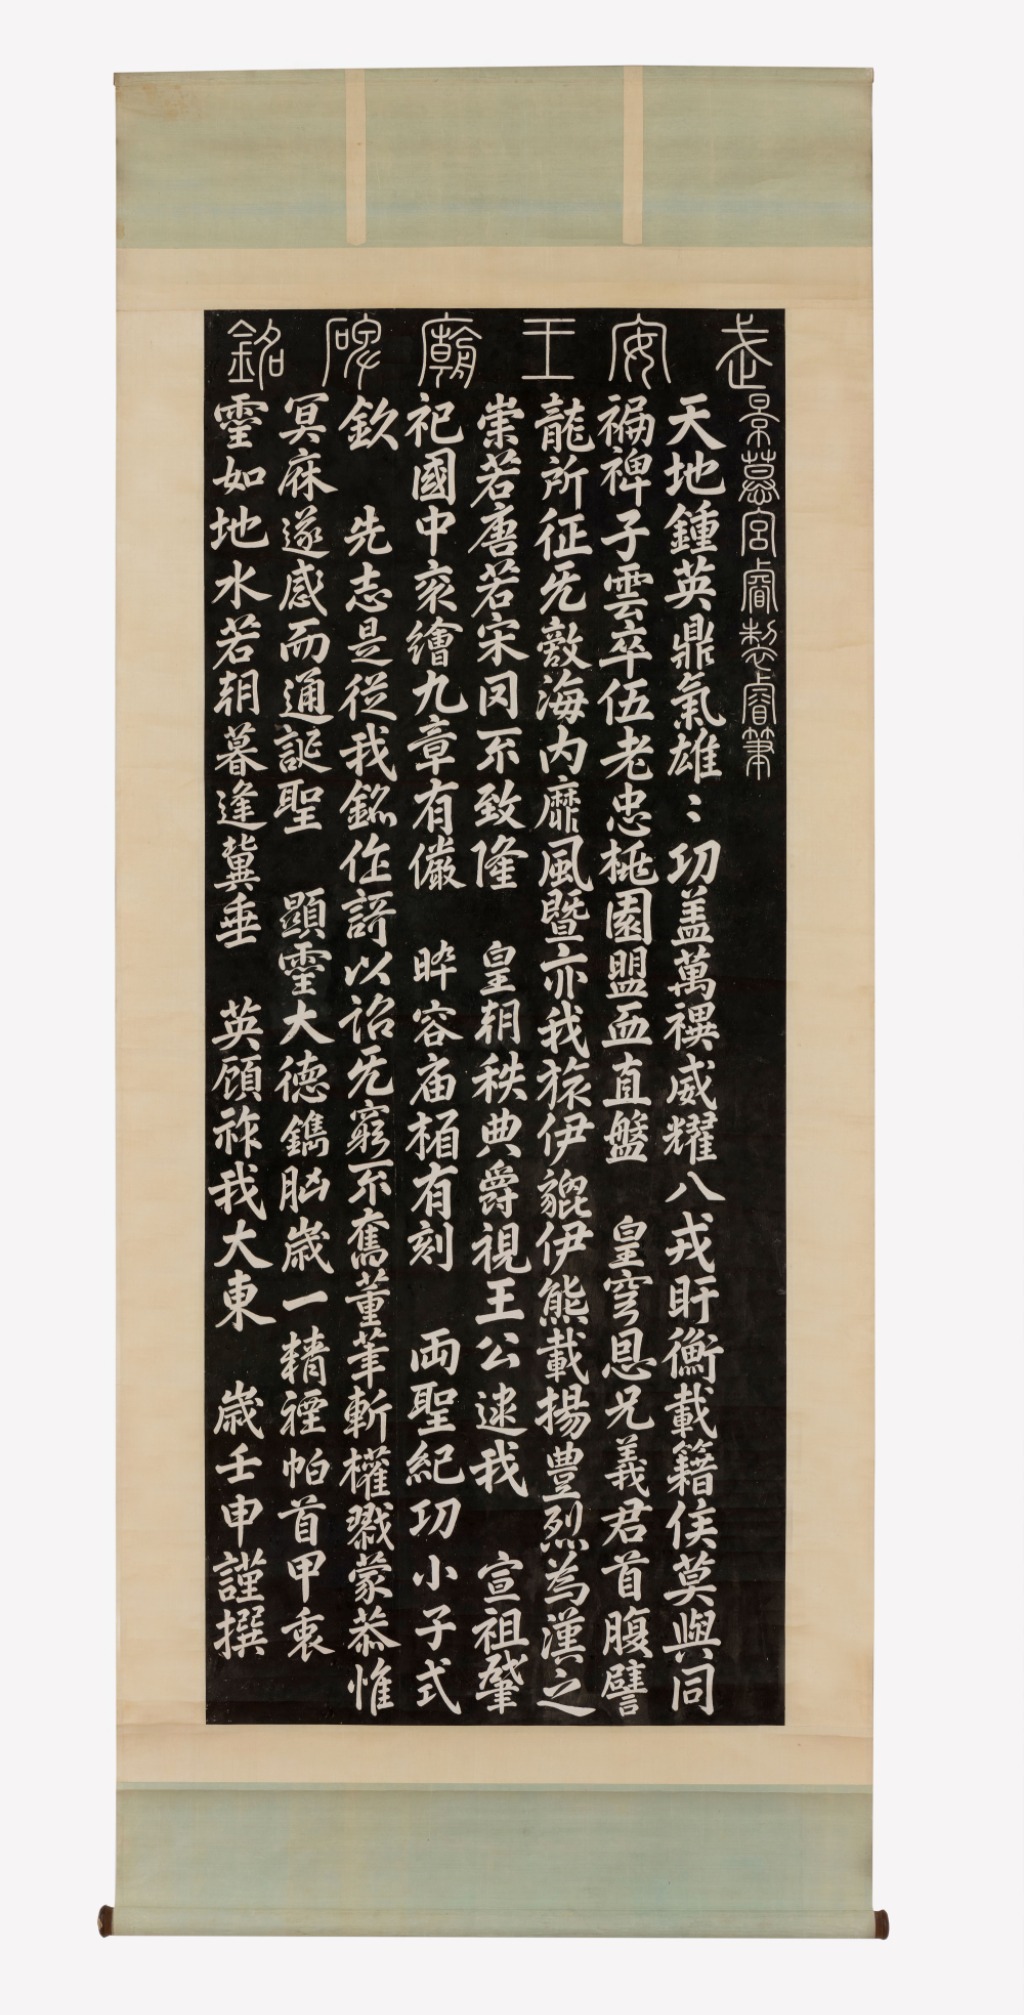 武安王廟碑銘
景慕宮睿製睿筆
天地鍾英鼎氣雄〻功盖萬禩威耀八戎盱衡載籍侯莫與同
褊裨子雲卒伍老忠桃園盟歃直盤 皇穹恩兄義君首腹譬
龍所征旡敵海内靡風曁亦我旅伊貔伊熊載揚豊烈為漢之
崇若唐若宋罔不致隆 皇朝秩典爵視王公逮我 宣祖肇
祀國中衮繪九章有儼 睟容庙楣有刻 両聖紀功小子式
欽 先志是從我銘作謌以詔旡窮不奮董筆斬權戮蒙恭惟
冥庥遂感而通誕聖 顯靈大德鐫胸歲一精禋帕首甲衷
靈如地水若朝暮逢冀垂 英顧祚我大東 歲壬申謹撰